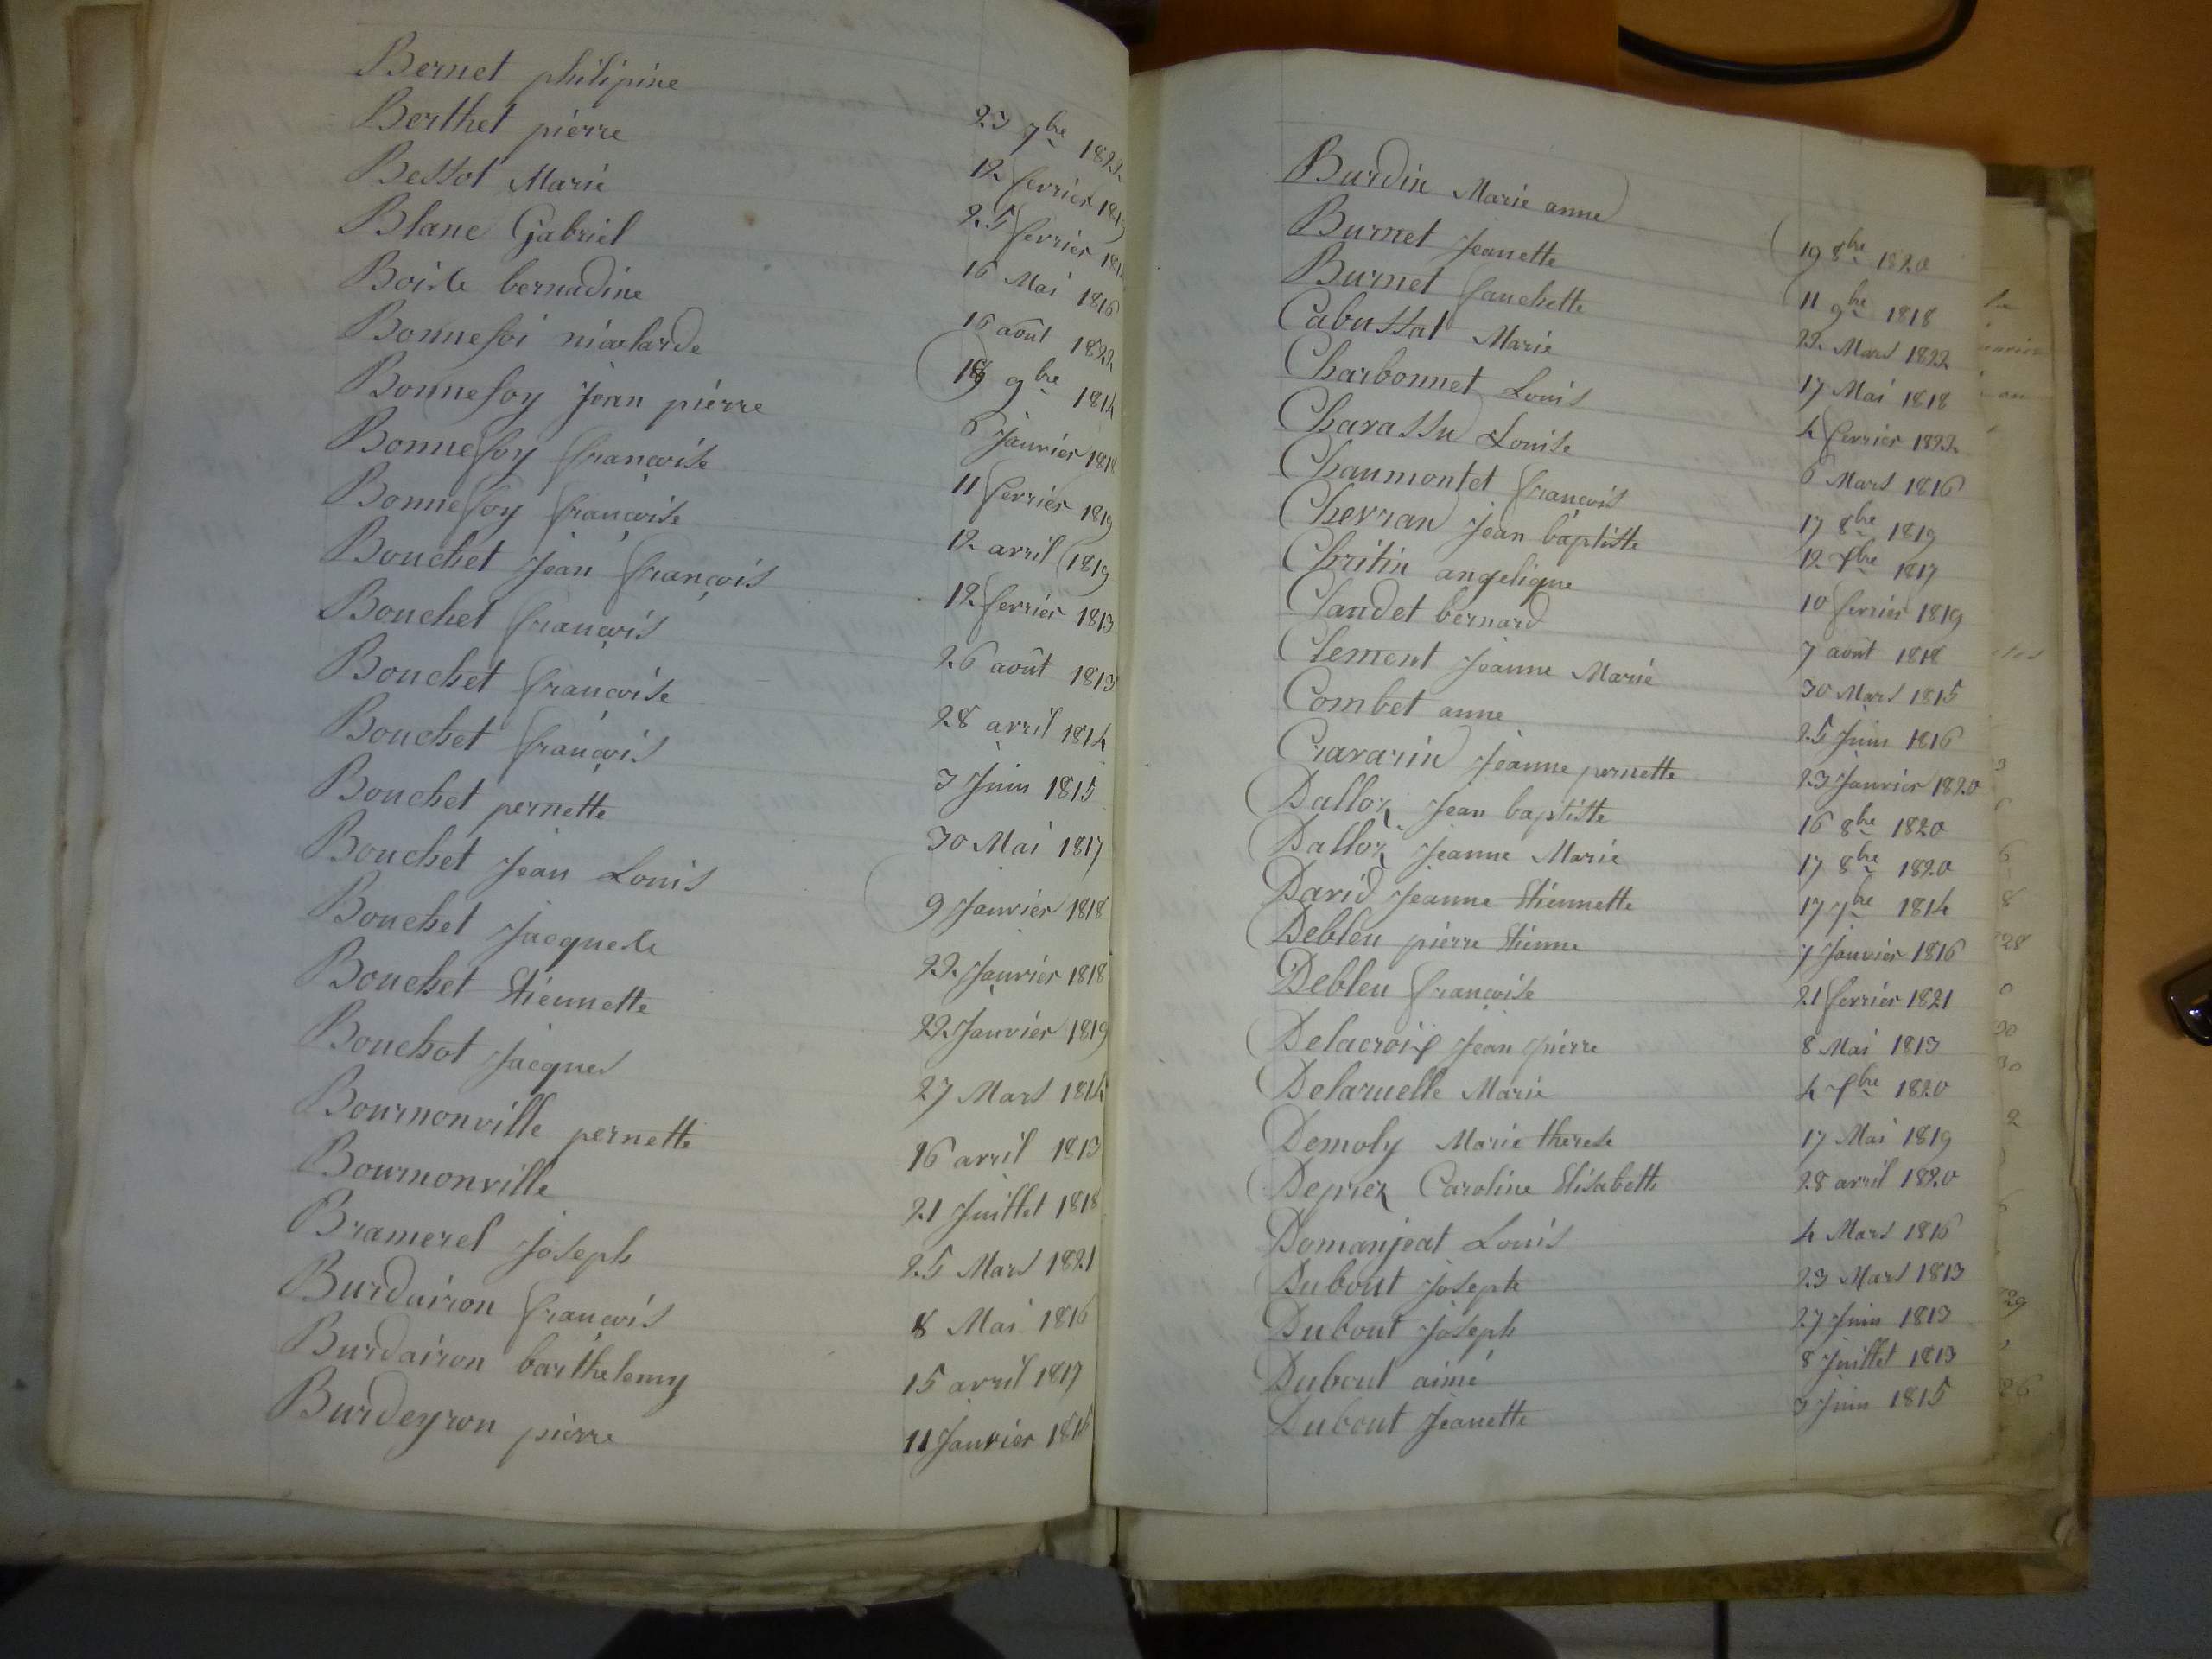 Bernet philipine 23 7bre 1822
Berthet pierre 12 fevrier 1819
Bessot Marie 25 fevrier
Blanc Gabriel 16 Mai 1816
Boisse bernadine 16 août 1822
Bonnefoi nicolarde 18 9bre 1814
Bonnefoy jean pierre 6 Janvier 1818
Bonnefoy françoise 11 fevrier 1819
Bonnefoy françoise 12 avril 1819
Bouchet jean françois 12 fevrier 1813
Bouchet françois 26 août 1813
Bouchet françoise 28 avril 1814
Bouchet françois 3 Juin 1815
Bouchet pernette 30 Mai 1817
Bouchet Jean Louis 9 Janvier 1818
Bouchet 22 Janvier 1818
Bouchet Etiennette 22 Janvier 1819
Bouchot Jacques 27 Mars 1814
Bournonville pernette 16 avril 1813
Bournonville 21 Juillet 1818
Bramerel joseph 25 Mars 1821
Burdairon françois 8 Mai 1816
Burdairon barthelemy 15 avril 1817
Burdeyron pierre 11 Janvier 1816
Burdin Marie anne 19 8bre 1820
Burnet Jeanette 11 9bre 1818
Burnet fanchette 22 Mars 1822
Cabussat Marie 17 Mai 1818
Charbonnet Louis 4 fevrier 1822
Charassu Louise 6 Mars 1816
Chaumontet françois 17 8bre 1819
Chevran jean baptiste 12 xbre 1817
Chritin angelique 10 fevrier 1819
Claudet bernard 7 août 1818
Clement Jeanne Marie 30 Mars 1815
Combet anne 25 Juin 1816
Cravarin Jeanne pernette 23 Janvier 1820
Dalloz Jean baptiste 16 8bre 1820
Dalloz Jeanne Marie 17 8bre 1820
David Jeanne Etiennette 17 7bre 1814
Debleu pierre Etienne 7 Janvier 1816
Debleu françoise 21 fevrier 1821
Delacroix Jean pierre 8 Mai 1813
Delaruelle Marie 4 xbre 1820
Demoly Marie therese 17 Mai 1819
Deprez Caroline Elisabeth 28 avril 1820
Domanjeat Louis 4 Mars 1816
Dubout joseph 23 Mars 1813
Dubout joseph 27 Juin 1813
Dubout aimé 8 Juillet 1813
Dubout Jeanette 3 Juin 1815